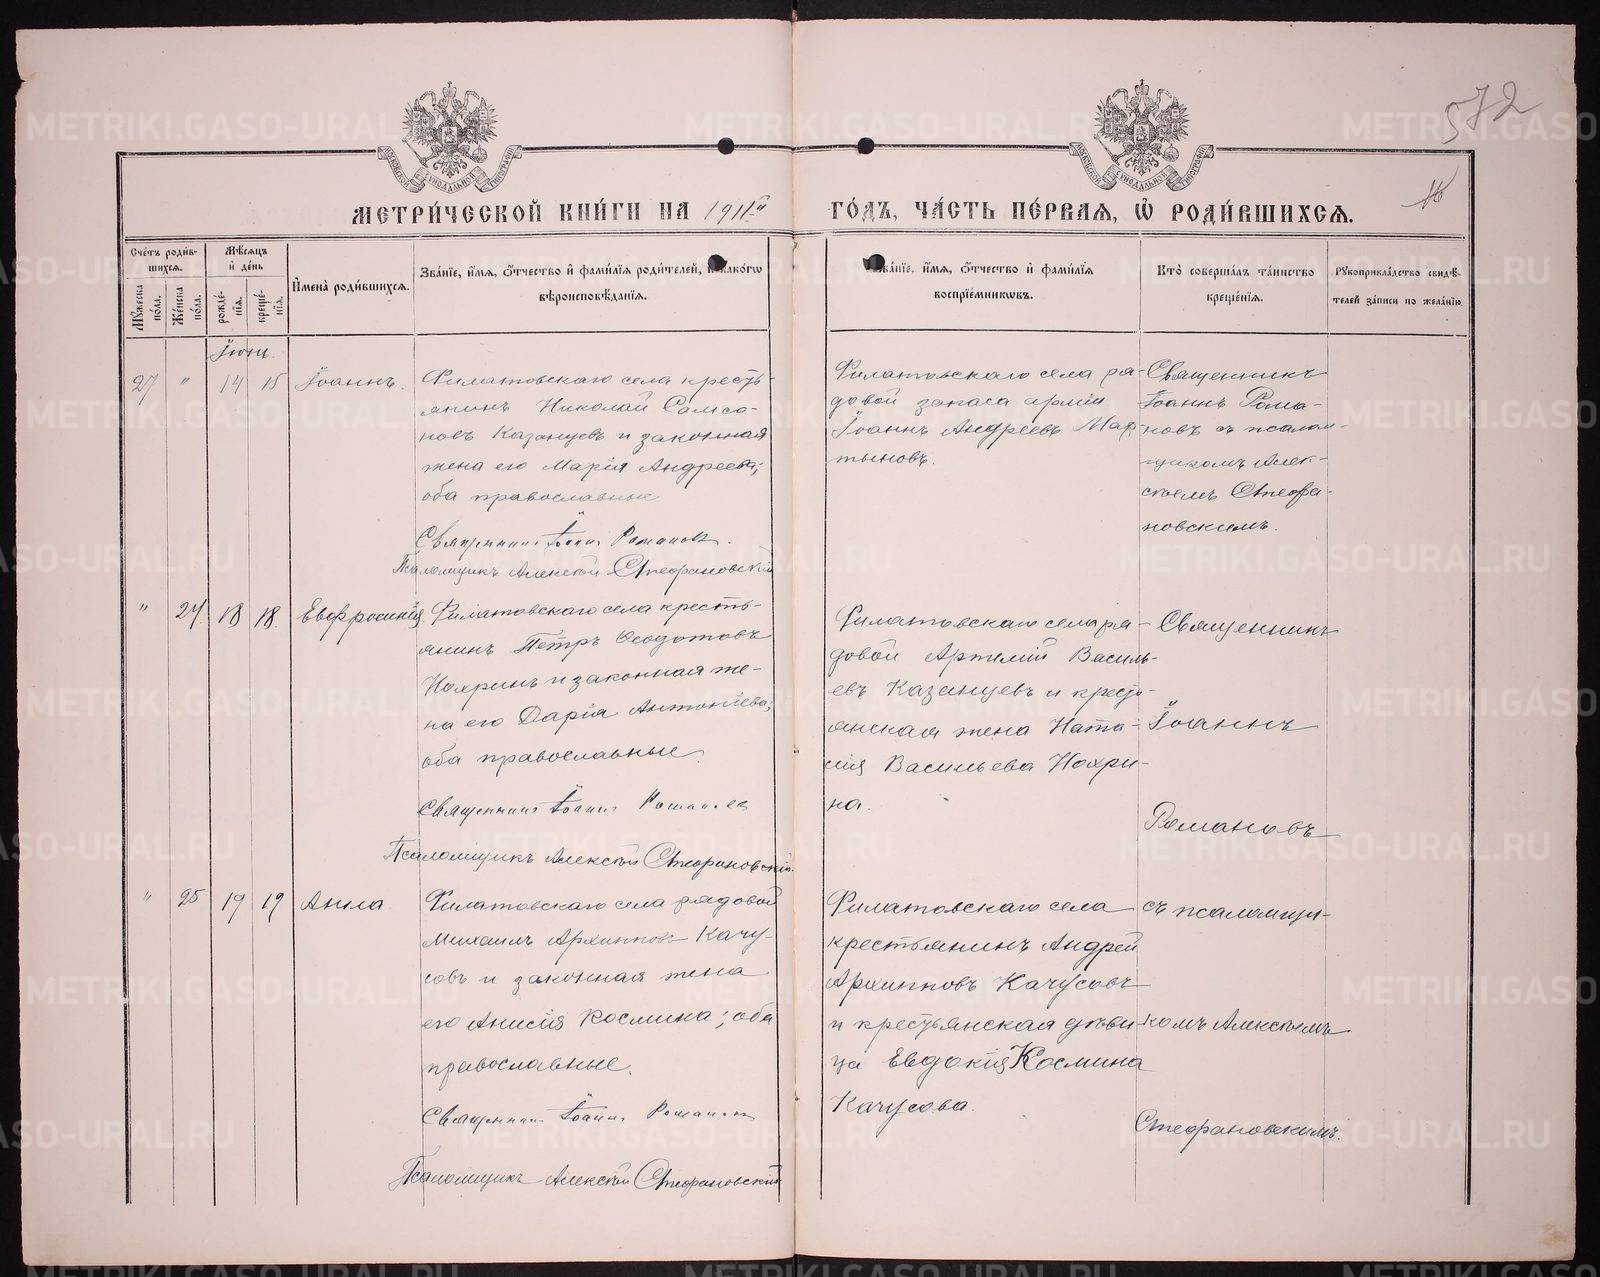 572
16
МЕТРИЧЕСКОЙ КНИГИ НА 1911й ГОДЪ, ЧАСТЬ ПЕРВАЯ, Ѡ РОДИВШИХСЯ.
Счетъ родившихся.
Мужеска пола.
Женска пола.
Мѣсяцъ и день
рожденія.
крещенія.
Имена родившихся.
Званіе, имя, отчество и фамилія родителей, и какогѡ вѣроисповѣданія.
Званіе, имя, отчество и фамилія воспріемниковъ.
Кто совершалъ таинство крещенія.
Рукоприкладство свидѣтелей записи по желанію.
Іюнь.
27 " 14 15 Іоаннъ.
Филатовскаго села кресть-
янинъ Николай Самсо-
новъ Казанцевъ и законная
жена его Марія Андреева;
оба православные
Священникъ Іоаннъ Романовъ.
Псаломщикъ Алексѣй Стефановскій
Филатовскаго села ря-
довой запаса арміи
Іоаннъ Андреевъ Мар-
тыновъ.
Священникъ
Іоаннъ Рома-
новъ съ псалом-
щикомъ Алек-
сѣемъ Стефа-
новскимъ.
" 24 18 18 Евфросинія
Филатовскаго села кресть-
янинъ Петръ Ѳеодотовъ
Нохринъ и законная же-
на его Дарія Антоніева;
оба православные.
Священникъ Іоаннъ Романовъ
Псаломщикъ Алексѣй Стефановскій.
Филатовскаго села ря-
довой Артемій Василь-
евъ Казанцевъ и кресть-
янская жена Ната-
лія Васильева Нохри-
на.
Священникъ
Іоаннъ
Романовъ
" 25 19 19 Анна
Филатовскаго села рядовой
Михаилъ Архипповъ Качу-
совъ и законная жена
его Анисія Космина; оба
православные.
Священникъ Іоаннъ Романовъ
Псаломщикъ Алексѣй Стефановскій
Филатовскаго села
крестьянинъ Андрей
Архипповъ Качусовъ
и крестьянская дѣви-
ца Евдокія Космина
Качусова.
съ псаломщи-
комъ Алексѣемъ
Стефановскимъ.
METRIKI.GASO-URAL.RU